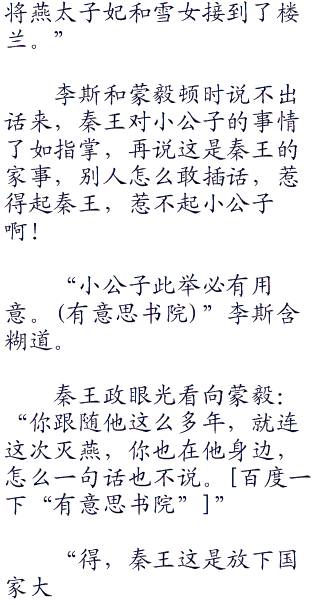 将燕太子妃和雪女接到了楼
兰。”
李斯和蒙毅顿时说不出
话来，秦王对小公子的事情
了如指掌，再说这是秦王的
家事，别人怎么敢插话，惹
得起秦王，惹不起小公子
啊！
“小公子此举必有用
意。(有意思书院)”李斯含
糊道。
秦王政眼光看向蒙毅：
“你跟随他这么多年，就连
这次灭燕，你也在他身边，
怎么一句话也不说。[百度一
下“有意思书院”]”
“得，秦王这是放下国
家大